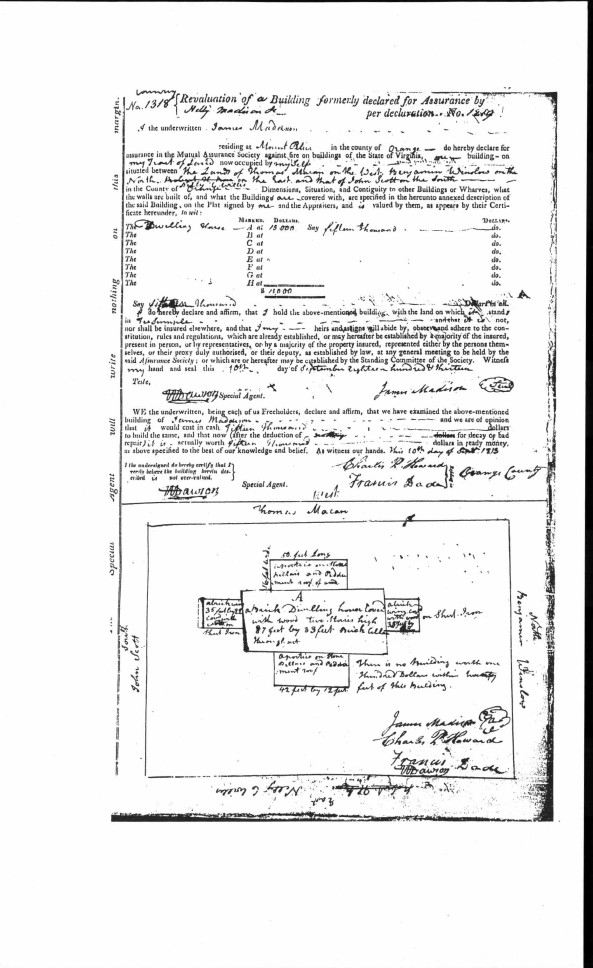 Country
No. 1318 { Revaluation of a Building formerly declared for Assurance by
Nelly Madison per declaration.. No.
I the underwritten James Madison
residing at Mount Pelier in the county of Orange do hereby declare for
assurance in the Mutual Assurance Society against fire on buildings of the State of Virginia, building - on
my Tract of Land now occupied by myself
situated between the Land of Thomas Macan on the West, Benjamin Winslow on the
North, on the East and that of John Scott on the South
in the County of Orange Dimensions, Situation, and Contiguity to other Buildings or Wharves, what
the walls are built of, and what the Buildings are covered with, are specified in the hereunto annexed description of
the said Building, on the Plat signed by me and the Appraisers, and is valued by them, as appears by their Certi-
ficate hereunder, to wit:
MARKED. DOLLARS. DOLLARS.
The Dwelling House A at 15000 Say fifteen thousand do.
The B at do.
The C at do.
The D at do.
The E at do.
The F at do.
The G at do.
The H at do.
$ 15,000
Say fifteen Thousand Dollars in all.
I do hereby declare and affirm, that I hold the above-mentioned building, with the land on which it stands
in Feesimple and that it is not,
nor shall be insured elsewhere, and that I my heirs and assigns will abide by, observe and adhere to the con-
stitution, rules and regulations, which are already established, or may hereafter be established by a majority of the insured,
present in person, or by representatives, or by a majority of the property insured, represented either by the persons them-
selves, or their proxy duly authorised, or their deputy, as established by law, at any general meeting to be held by the
said Assurance Society; or which are or hereafter may be established by the Standing Committee of the Society. Witness
my hand and seal this 10th day of September eighteen hundred & thirteen
Teste,
WDawson Special Agent. James Madison Seal
WE the underwritten, being each of us Freeholders, declare and affirm, that we have examined the above-mentioned
building of James Maddison and we are of opinion
that it would cost in cash fifteen Thousand dollars
to build the same, and that now (after the deduction of nothing dollars for decay or bad
repair) it is actually worth fifteen Thousand dollars in ready money,
as above specified to the best of our knowledge and belief. As witness our hands. this 10th day of Sept 1813
I the undersigned do hereby certify that I
verily believe the building herein des-
cribed is not over-valued.
Charles P. Howard
Francis Dade
Orange County
WDawson Special Agent.
West
Thomas Macan
50. feet Long
a portico on Stone
pillars and Pedde
ment roof of wood
A
a Brick Dwelling house Covd
with wood Two Stories high
87 feet by 33 feet Brick Cellar
throughout
a brick wing
Sheet Iron
a brick
wing covd
on Sheet Iron
a portico on Stone
Pillars and Pedde
ment roof
42 feet by 12 feet
There is no Building worth one
Hundred Dollars within twenty
feet of this Building.
South
John Scott
North
Benjamin Winslow
James Madison Seal
Charles P. Howard
Francis Dade
WDawson
East
margin.
this
on
nothing
write
will
Agent
Special